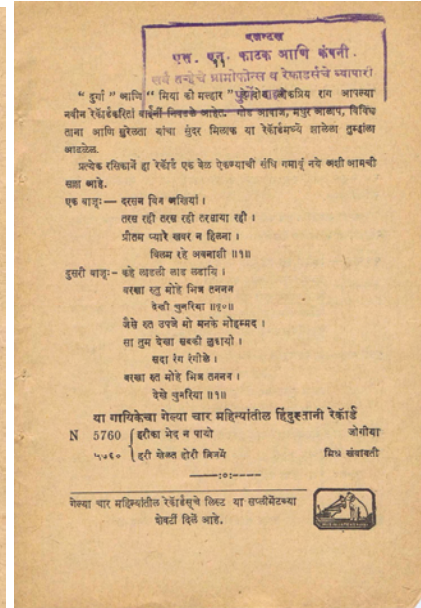 एजन्टस
एस. एन. काटक आणि कंपनी.
सर्व तऱ्हेचे ग्रामोफोन्स व रेकार्डसचे व्यापारी
" दुर्गा " आणि " मिया की मल्हार " लोकप्रिय राग आपल्या
नवीन रेकॉर्डकरितां बाईनीं निवडले आहेत. गोड आवाज, मधुर आलाप, विविध
ताना आणि सुरेलता यांचा सुंदर मिलाफ या रेकॉर्डमध्यें झालेला तुम्हांला
आढळेल.
प्रत्येक रसिकानें हा रेकॉर्ड एक वेळ ऐकण्याची संधि गमावूं नये अशी आमची
सल्ला आहे.
एक बाजूः— दरसन बिन अखियां ।
तरस रही तरस रही तरसाया रही ।
प्रीतम प्यारे खबर न हिलना ।
बिलम रहे अवनाशी ॥१॥
दुसरी बाजूः- कहे लाडली लाड लडायि ।
बरखा रुतु मोहे भिज तननन
देखी चुनरिया ॥१०॥
जैसे रुत उपजे मो मनके मोहम्मद ।
सा तुम देखा सबकी लुभायो ।
सदा रंग रंगीले ।
बरखा रुत मोहे भिज तननन ।
देखे चुनरिया ॥१॥
या गायिकेचा गेल्या चार महिन्यांतील हिंदुस्तानी रेकॉर्ड
N 5760 हरीका भेद न पायो जोगीया
५७६० हरी खेलत होरी ब्रिजमें मिश्र खंबावती
—:०:—
गेल्या चार महिन्यांतील रेकॉर्डस्‌चे लिस्ट या सप्लीमेंटच्या
शेवटीं दिलें आहे.